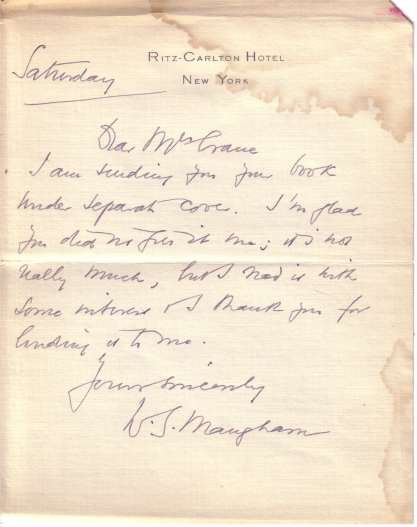 RITZ-CARLTON HOTEL
NEW YORK
Saturday
Dear Mrs Crane
I am sending you your book
under separate cover. I'm glad
you did not give it me; it is not
really much, but I read it with
some interest & I thank you for
lending it to me.
Yours sincerely
W. S. Maugham